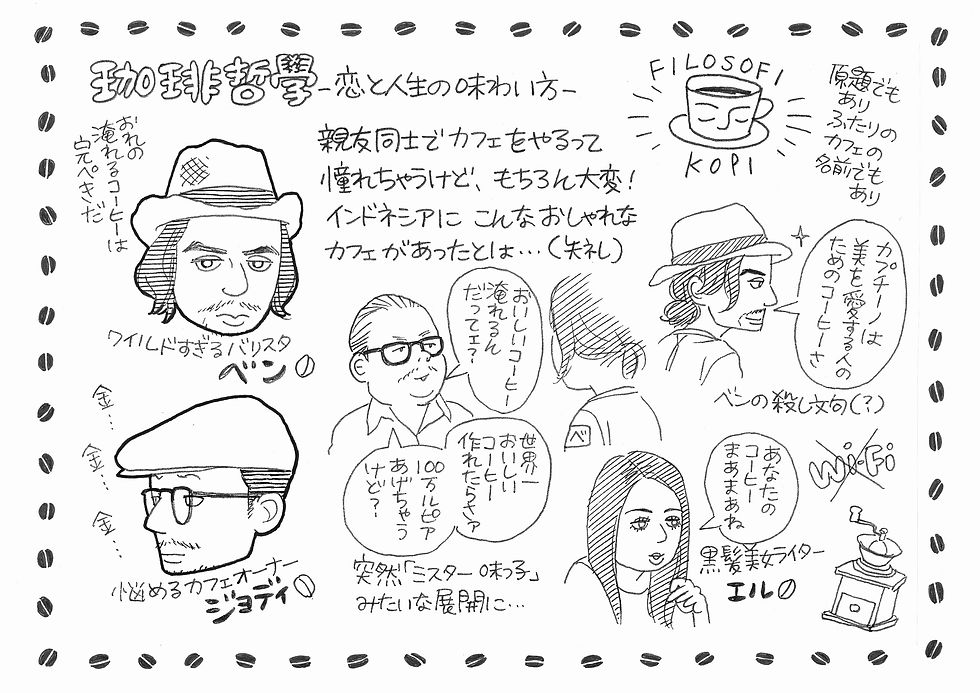 珈琲哲學 -恋と人生の味わい方-
FILOSOFI
KOPI
原題でも
あり
ふたりの
カフェの
名前でも
あり
おれの
淹れるコーヒーは
完ぺきだ
親友同士でカフェをやるって
憧れちゃうけど、もちろん大変!
インドネシアに こんなおしゃれな
カフェがあったとは…(失礼)
ワイルドすぎるバリスタ
ベン
カプチーノは
美を愛する人の
ためのコーヒーさ
ベンの殺し文句(?)
おいしいコーヒー
淹れるん
だってェ?
世界一
おいしい
コーヒー
作れたらさァ
100万ルピア
あげちゃう
けど?
ベ
突然「ミスター味っ子」
みたいな展開に…
金…
金…
金…
悩めるカフェオーナー
ジョディ
あなたの
コーヒー
まあまあね
黒髪美女ライター
エル
Wi-Fi